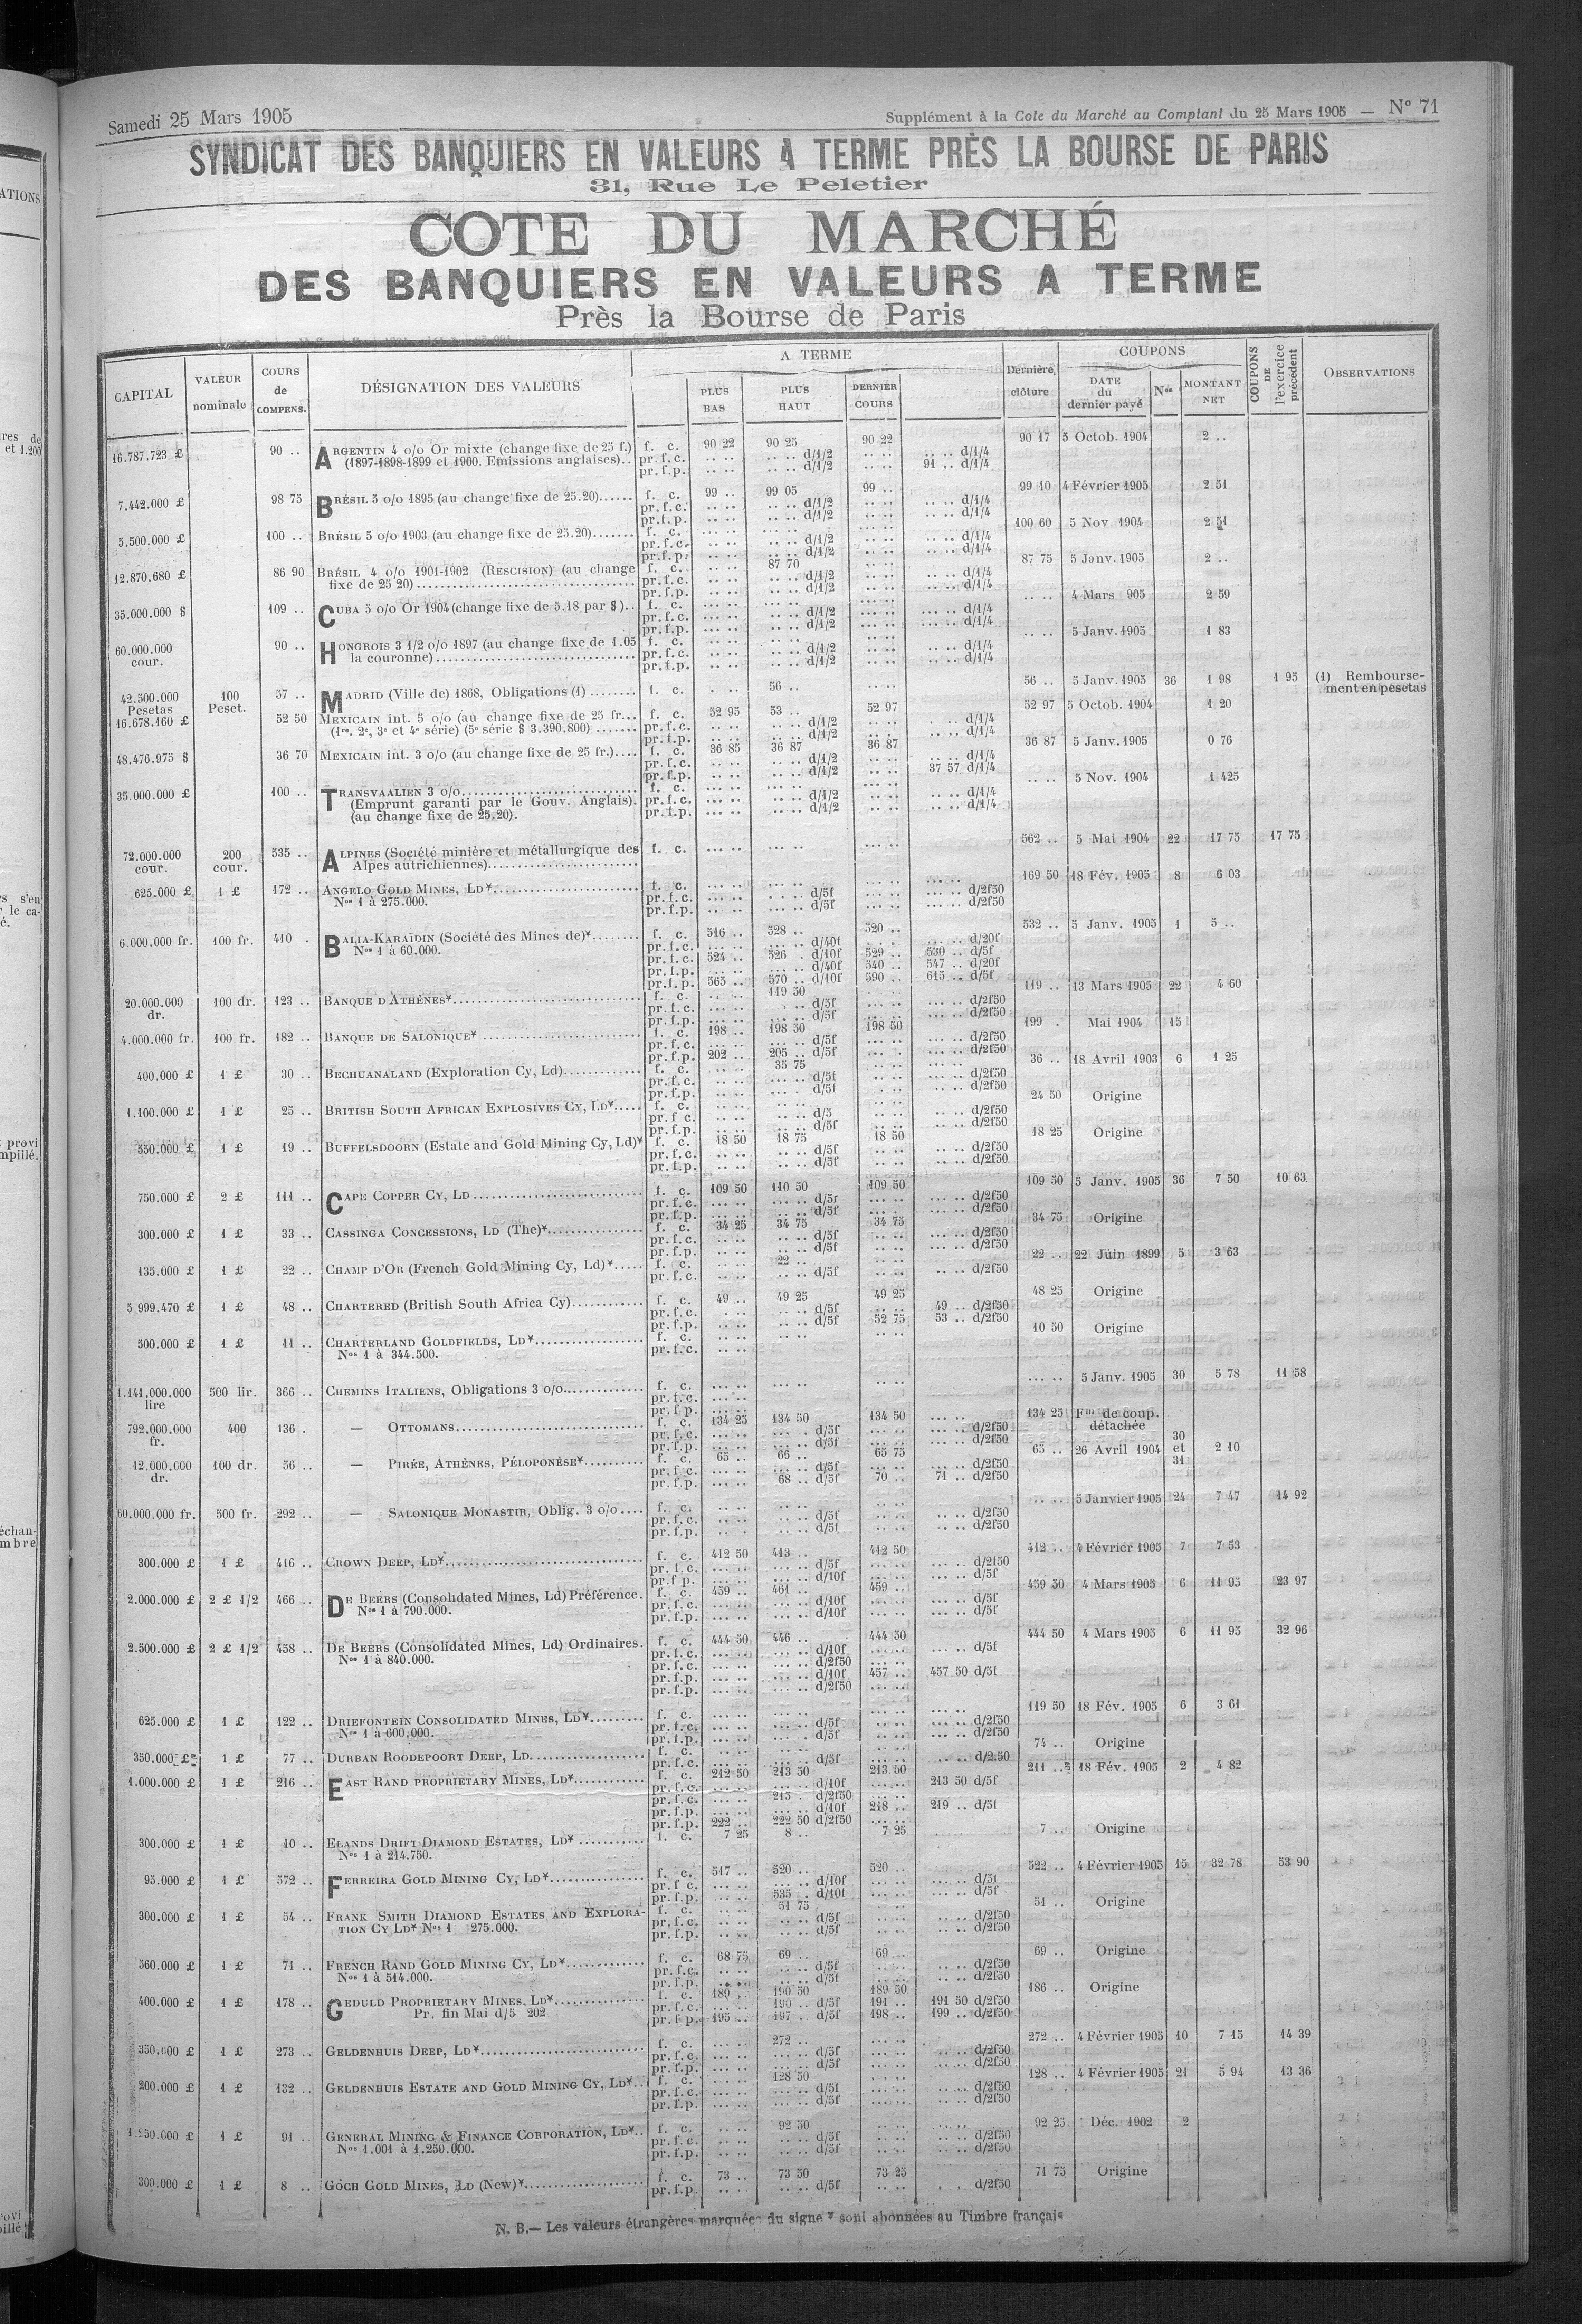 Samedi 25 Mars 1905
Supplément à la Cote du Marché au Comptant du 25 Mars 1905 — Nº 71
SYNDICAT DES BANQUIERS EN VALEURS A TERME PRÈS LA BOURSE DE PARIS
31, Rue Le Peletier
COTE DU MARCHÉ
DES BANQUIERS EN VALEURS A TERME
Près la Bourse de Paris
CAPITAL VALEUR nominale COURS de COMPENS. DÉSIGNATION DES VALEURS A TERME PLUS BAS PLUS HAUT DERNIER COURS Dernière clôture COUPONS DATE du dernier payé Nos MONTANT NET COUPONS DE l'exercice précédent OBSERVATIONS
16.787.723 £ 90 .. ARGENTIN 4 o/o Or mixte (change fixe de 25 f.) f. c. 90 22 90 25 90 22 90 17 5 Octob. 1904 2 ..
(1897-1898-1899 et 1900. Emissions anglaises).. pr. f. c. d/1/2 d/1/4
pr. f. p. d/1/2 91 .. d/1/4
7.442.000 £ 98 75 BRÉSIL 5 o/o 1895 (au change fixe de 25.20) f. c. 99 .. 99 05 99 .. 99 10 4 Février 1905 2 51
pr. f. c. d/1/2 d/1/4
pr. f. p. d/1/2 d/1/4
5.500.000 £ 100 .. BRÉSIL 5 o/o 1903 (au change fixe de 25.20) f. c. 100 60 5 Nov 1904 2 51
pr. f. c. d/1/2 d/1/4
pr. f. p. d/1/2 d/1/4
12.870.680 £ 86 90 BRÉSIL 4 o/o 1901-1902 (RESCISION) (au change f. c. 87 70 87 75 5 Janv. 1905 2 ..
fixe de 25 20) pr. f. c. d/1/2 d/1/4
pr. f. p. d/1/2 d/1/4
35.000.000 $ 109 .. CUBA 5 o/o Or 1904 (change fixe de 5.18 par $) f. c. 4 Mars 905 2 59
pr. f. c. d/1/2 d/1/4
pr. f. p. d/1/2 d/1/4
60.000.000 cour. 90 .. HONGROIS 3 1/2 o/o 1897 (au change fixe de 1.05 f. c. 5 Janv. 1905 1 83
la couronne) pr. f. c. d/1/2 d/1/4
pr. f. p. d/1/2 d/1/4
42.500.000 Pesetas 100 Peset. 57 .. MADRID (Ville de) 1868, Obligations (1) f. c. 56 .. 56 .. 5 Janv. 1905 36 1 98 1 95 (1) Remboursement en pesetas
16.678.160 £ 52 50 MEXICAIN int. 5 o/o (au change fixe de 25 fr. f. c. 52 95 53 .. 52 97 52 97 5 Octob. 1904 1 20
(1re, 2e, 3e et 4e série) (5e série $ 3.390.800) pr. f. c. d/1/2 d/1/4
pr. f. p. d/1/2 d/1/4
48.476.975 $ 36 70 MEXICAIN int. 3 o/o (au change fixe de 25 fr.) f. c. 36 85 36 87 36 87 36 87 5 Janv. 1905 0 76
pr. f. c. d/1/2 d/1/4
pr. f. p. d/1/2 37 57 d/1/4
35.000.000 £ 100 .. TRANSVAALIEN 3 o/o f. c. 5 Nov. 1904 1 425
(Emprunt garanti par le Gouv. Anglais). pr. f. c. d/1/2 d/1/4
(au change fixe de 25.20). pr. f. p. d/1/2 d/1/4
72.000.000 cour. 200 cour. 535 .. ALPINES (Société minière et métallurgique des f. c. 562 .. 5 Mai 1904 22 17 75 17 75
Alpes autrichiennes)
625.000 £ 1 £ 172 .. ANGELO GOLD MINES, LD* f. c. 169 50 18 Fév. 1905 8 6 03
Nos 1 à 275.000. pr. f. c. d/5f d/2f50
pr. f. p. d/5f d/2f50
6.000.000 fr. 100 fr. 410 . BALIA-KARAÏDIN (Société des Mines de)* f. c. 516 .. 528 .. 520 .. 532 .. 5 Janv. 1905 1 5 ..
Nos 1 à 60.000. pr. f. c. d/40f d/20f
pr. f. c. 524 .. 526 . d/10f 529 .. 530 .. d/5f
pr. f. p. d/40f 540 .. 547 .. d/20f
pr. f. p. 565 .. 570 .. d/10f 590 .. 615 .. d/5f
20.000.000 dr. 100 dr. 123 .. BANQUE D'ATHÈNES* f. c. 119 50 119 .. 13 Mars 1905 22 4 60
pr. f. c. d/5f d/2f50
pr. f. p. d/5f d/2f50
4.000.000 fr. 100 fr. 182 .. BANQUE DE SALONIQUE* f. c. 198 .. 198 50 198 50 199 . Mai 1904 15
pr. f. c. d/5f d/2f50
pr. f. p. 202 .. 205 .. d/5f d/2f50
400.000 £ 1 £ 30 .. BECHUANALAND (Exploration Cy, Ld) f. c. 35 75 36 .. 18 Avril 1903 6 1 25
pr. f. c. d/5f d/2f50
pr. f. p. d/5f d/2f50
1.100.000 £ 1 £ 25 .. BRITISH SOUTH AFRICAN EXPLOSIVES CY, LD* f. c. 24 50 Origine
pr. f. c. d/5 d/2f50
pr. f. p. d/5f d/2f50
550.000 £ 1 £ 19 .. BUFFELSDOORN (Estate and Gold Mining Cy, Ld)* f. c. 18 50 18 75 18 50 18 25 Origine
pr. f. c. d/5f d/2f50
pr. f. p. d/5f d/2f50
750.000 £ 2 £ 111 .. CAPE COPPER CY, LD f. c. 109 50 110 50 109 50 109 50 5 Janv. 1905 36 7 50 10 63
pr. f. c. d/5f d/2f50
pr. f. p. d/5f d/2f50
300.000 £ 1 £ 33 .. CASSINGA CONCESSIONS, LD (The)* f. c. 34 25 34 75 34 75 34 75 Origine
pr. f. c. d/5f d/2f50
pr. f. p. d/5f d/2f50
135.000 £ 1 £ 22 .. CHAMP D'OR (French Gold Mining Cy, Ld)* f. c. 22 .. 22 .. 22 Juin 1899 5 3 63
pr. f. c. d/5f d/2f50
5,999.470 £ 1 £ 48 .. CHARTERED (British South Africa Cy) f. c. 49 .. 49 25 49 25 48 25 Origine
pr. f. c. d/5f 49 .. d/2f50
pr. f. p. d/5f 52 75 53 .. d/2f50
500.000 £ 1 £ 11 .. CHARTERLAND GOLDFIELDS, LD* f. c. 10 50 Origine
Nos 1 à 344.500. pr. f. c.
1.141.000.000 lire 500 lir. 366 .. CHEMINS ITALIENS, Obligations 3 o/o f. c. 5 Janv. 1905 30 5 78 11 58
pr. f. c.
pr. f. p.
792.000.000 fr. 400 136 . — OTTOMANS f. c. 134 25 134 50 134 50 134 25 Fin de coup. détachée
pr. f. c. d/5f d/2f50
pr. f. p. d/5f d/2f50
12.000.000 dr. 100 dr. 56 .. — PIRÉE, ATHÈNES, PÉLOPONÈSE* f. c. 65 .. 66 .. 65 75 65 .. 26 Avril 1904 30 et 31 2 10
pr. f. c. d/5f d/2f50
pr. f. p. 68 .. d/5f 70 .. 71 .. d/2f50
60.000.000 fr. 500 fr. 292 .. — SALONIQUE MONASTIR, Oblig. 3 o/o f. c. 5 Janvier 1905 24 7 47 14 92
pr. f. c. d/5f d/2f50
pr. f. p. d/5f d/2f50
300.000 £ 1 £ 416 .. CROWN DEEP, LD* f. c. 412 50 413 .. 412 50 412 .. 4 Février 1905 7 7 53
pr. f. c. d/5f d/2f50
pr. f. p. d/10f d/5f
2.000.000 £ 2 £ 1/2 466 .. DE BEERS (Consolidated Mines, Ld) Préférence. f. c. 459 .. 461 .. 459 .. 459 50 4 Mars 1905 6 11 95 23 97
Nos 1 à 790.000. pr. f. c. d/10f d/5f
pr. f. p. d/10f d/5f
2.500.000 £ 2 £ 1/2 458 .. DE BEERS (Consolidated Mines, Ld) Ordinaires. f. c. 444 50 446 .. 444 50 444 50 4 Mars 1905 6 11 95 32 96
Nos 1 à 840.000. pr. f. c. d/10f d/5f
pr. f. c. d/2f50
pr. f. p. d/10f 457 .. 457 50 d/5f
pr. f. p. d/2f50
625.000 £ 1 £ 122 .. DRIEFONTEIN CONSOLIDATED MINES, LD* f. c. 119 50 18 Fév. 1905 6 3 61
Nos 1 à 600.000. pr. f. c. d/5f d/2f50
pr. f. p. d/5f d/2f50
350.000 £ 1 £ 77 .. DURBAN ROODEPOORT DEEP, LD f. c. 74 .. Origine
pr. f. c. d/5f d/2.50
1.000.000 £ 1 £ 216 .. EAST RAND PROPRIETARY MINES, LD* f. c. 212 50 213 50 213 50 211 .. 18 Fév. 1905 2 4 82
pr. f. c. d/10f 213 50 d/5f
pr. f. c. 215 . d/2f50
pr. f. p. d/10f 218 .. 219 .. d/5f
pr. f. p. 222 .. 222 50 d/2f50
300.000 £ 1 £ 10 .. ELANDS DRIFT DIAMOND ESTATES, LD* f. c. 7 25 8 .. 7 25 7 .. Origine
Nos 1 à 214.750.
95.000 £ 1 £ 572 .. FERREIRA GOLD MINING CY, LD* f. c. 517 .. 520 .. 520 .. 522 .. 4 Février 1905 15 32 78 53 90
pr. f. c. d/10f d/5f
pr. f. p. 535 . d/10f d/5f
300.000 £ 1 £ 54 .. FRANK SMITH DIAMOND ESTATES AND EXPLORA- f. c. 51 75 51 .. Origine
TION CY LD* Nos 1 275.000. pr. f. c. d/5f d/2f50
pr. f. p. d/5f d/2f50
560.000 £ 1 £ 71 .. FRENCH RAND GOLD MINING CY, LD* f. c. 68 75 69 .. 69 .. 69 .. Origine
Nos 1 à 514.000. pr. f. c. d/5f d/2f50
pr. f. p. d/5f d/2f50
400.000 £ 1 £ 178 .. GEDULD PROPRIETARY MINES, LD* f. c. 189 . 190 50 189 50 186 .. Origine
Pr. fin Mai d/5 202 pr. f. c. 190 .. d/5f 191 .. 191 50 d/2f50
pr. f. p. 195 .. 197 . d/5f 198 .. 199 .. d/2f50
350.000 £ 1 £ 273 .. GELDENHUIS DEEP, LD* f. c. 272 .. 272 .. 4 Février 1905 10 7 15 14 39
pr. f. c. d/5f d/2f50
pr. f. p. d/5f d/2f50
200.000 £ 1 £ 132 .. GELDENHUIS ESTATE AND GOLD MINING CY, LD* f. c. 128 50 128 .. 4 Février 1905 21 5 94 13 36
pr. f. c. d/5f d/2f50
pr. f. p. d/5f d/2f50
1.250.000 £ 1 £ 91 .. GENERAL MINING & FINANCE CORPORATION, LD* f. c. 92 50 92 25 Déc. 1902 2
Nos 1.001 à 1.250.000. pr. f. c. d/5f d/2f50
pr. f. p. d/5f d/2f50
300.000 £ 1 £ 8 .. GÓCH GOLD MINES, LD (New)* f. c. 73 .. 73 50 73 25 71 75 Origine
pr. f. p. d/5f d/2f50
N. B.— Les valeurs étrangères marquées du signe * sont abonnées au Timbre français